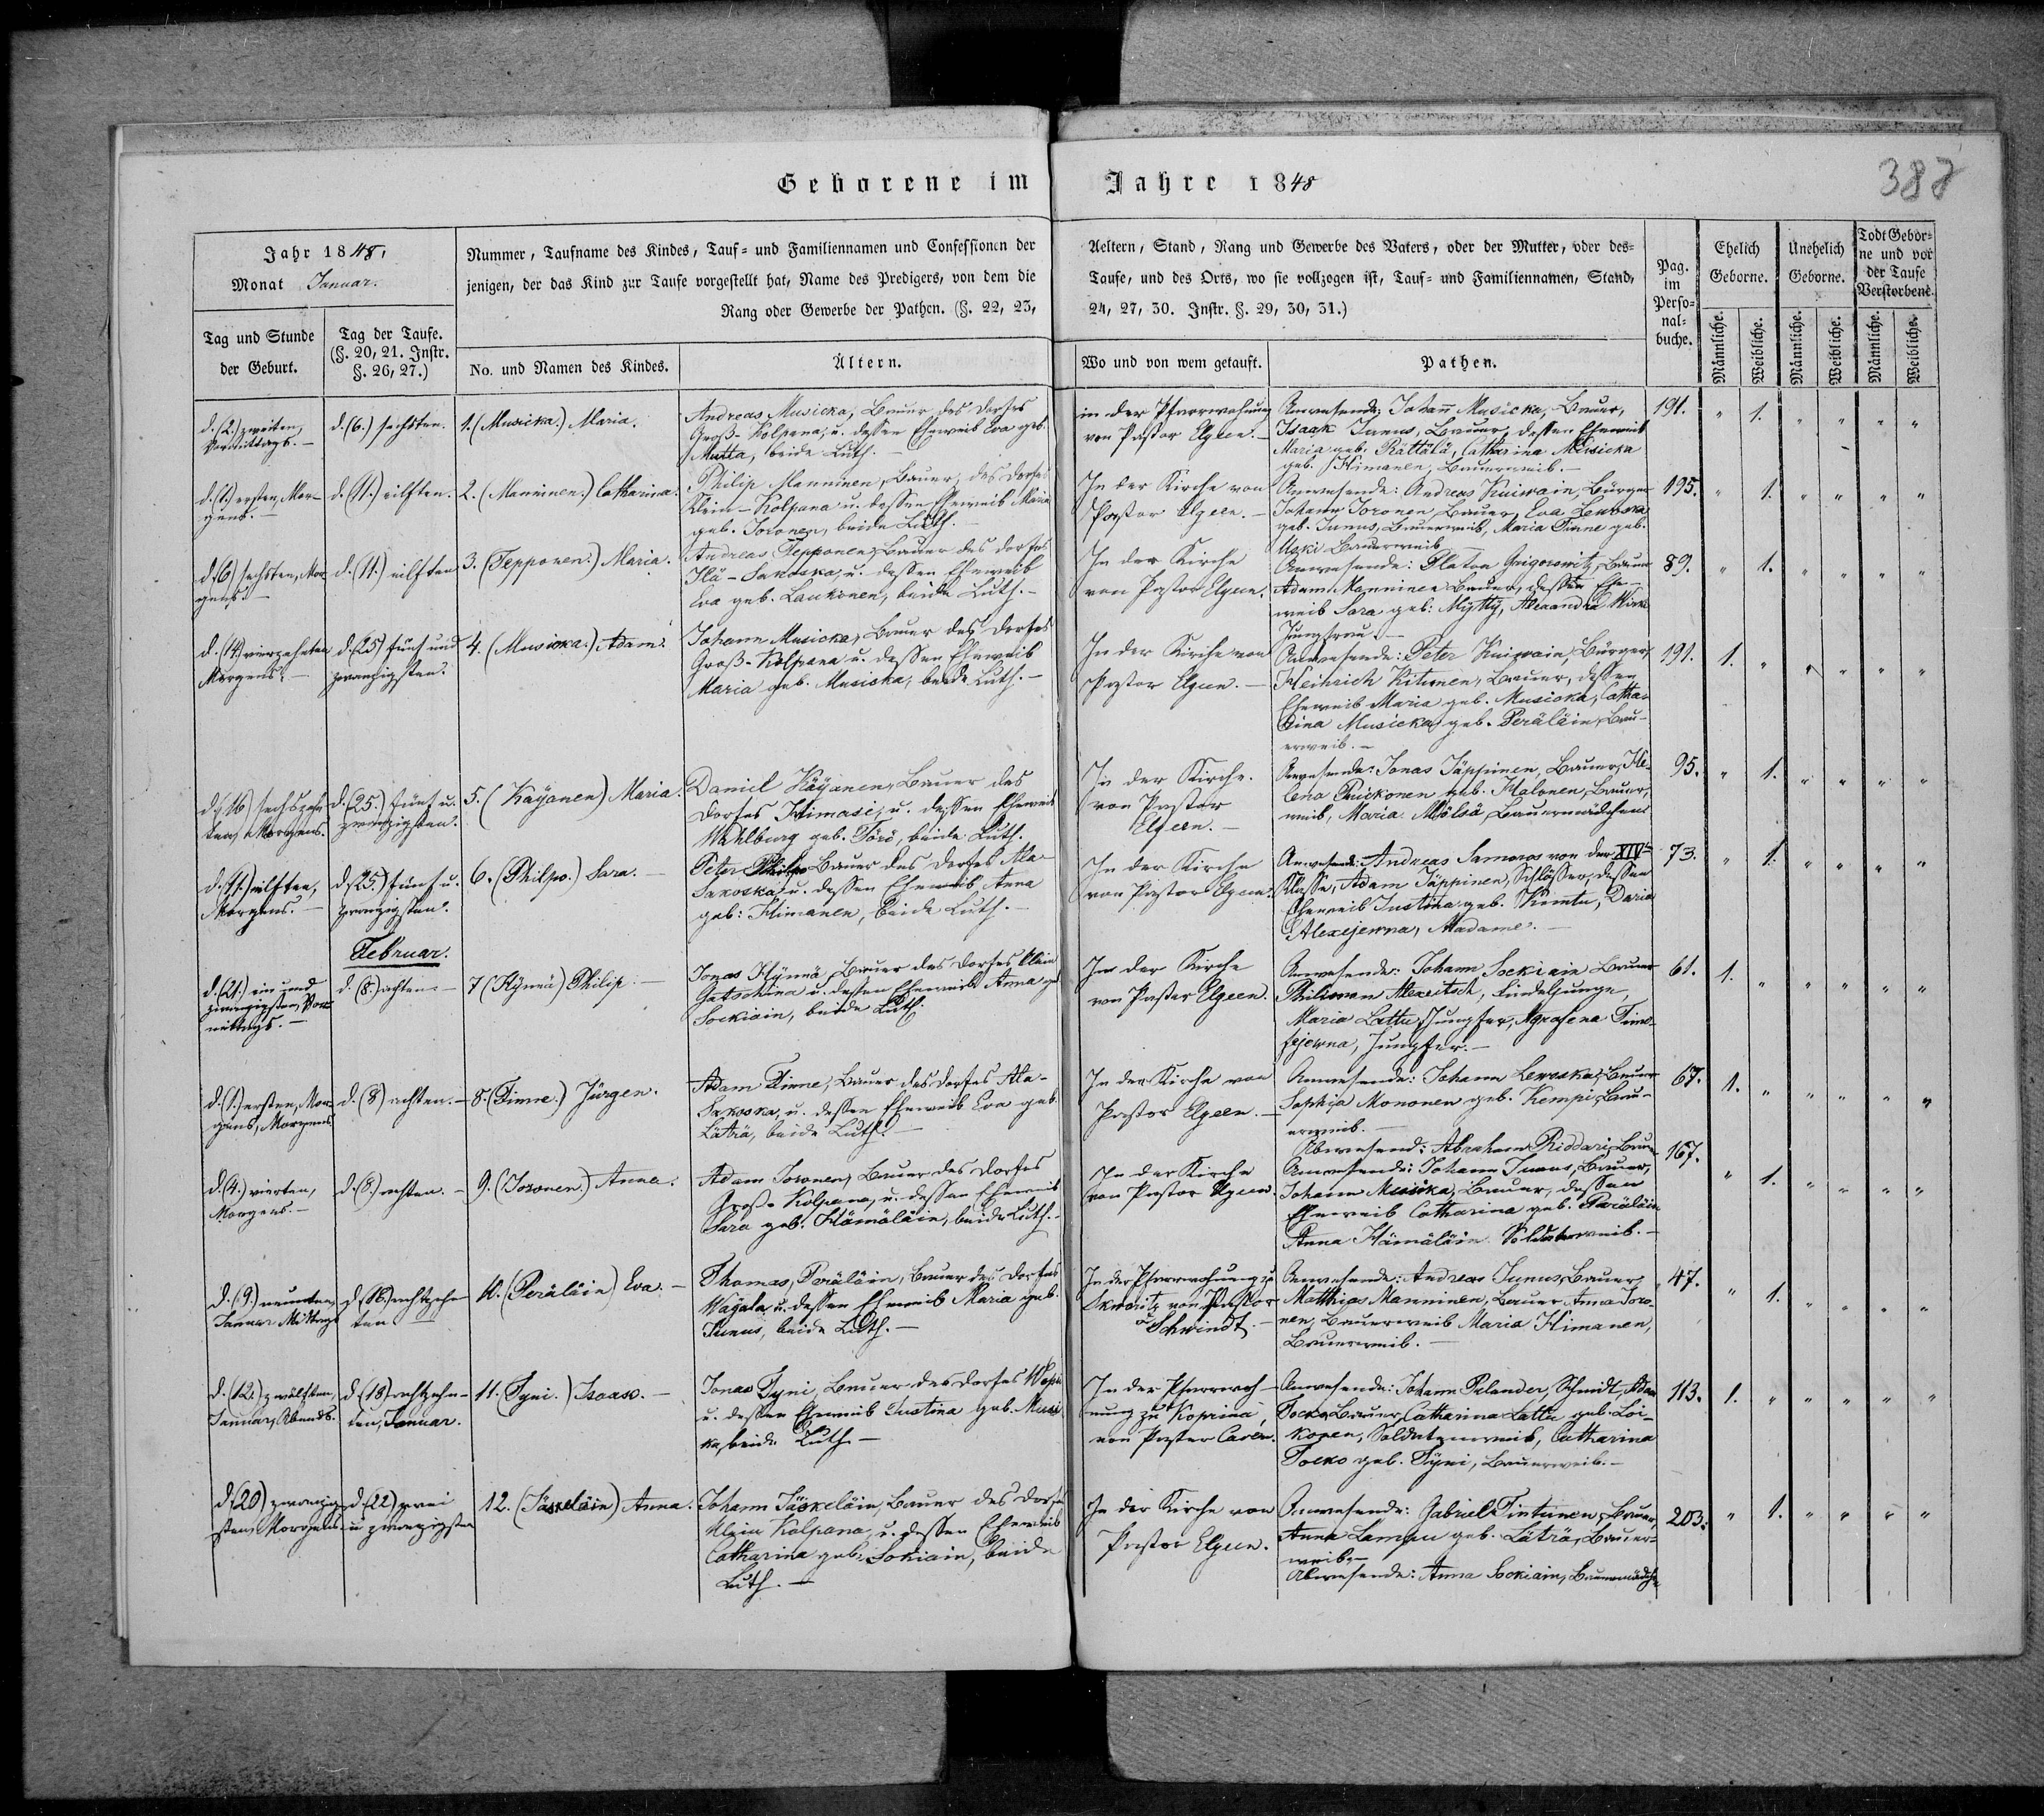 Geborene im Jahre 1848
388
Jahr 1848,
Monat Januar.
Nummer, Taufname des Kindes, Tauf- und Familiennamen und Confessionen der Aeltern, Stand, Rang und Gewerbe des Vaters, oder der Mutter, oder des-
jenigen, der das Kind zur Taufe vorgestellt hat, Name des Predigers, von dem die Taufe, und des Orts, wo sie vollzogen ist, Tauf- und Familiennamen, Stand,
Rang oder Gewerbe der Pathen. (§. 22, 23, 24, 27, 30. Instr. §. 29, 30, 31.)
Pag. im Perso-nal-buche.
Ehelich Geborne.
Unehelich Geborne.
Todt Gebor-ne und vor der Taufe Verstorbene
Tag und Stunde der Geburt.
Tag der Taufe. (§. 20, 21. Instr. §. 26, 27.)
No. und Namen des Kindes.
Ältern.
Wo und von wem getauft.
Pathen.
Männliche. Weibliche. Männliche. Weibliche. Männliche. Weibliche.
d. (2.) zweiten,
Vormittags.
d. (6.) sechsten.
1. (Musicka.) Maria.
Andreas Musicka, Bauer des Dorfes
Groß-Kolpana, u. dessen Eheweib Eva geb.
Mutta, beide Luth.
in der Pfarrwohnung
von Pastor Elgeen.
Anwesende: Johann Musicka, Bauer,
Isaak Junus, Bauer, dessen Eheweib
Maria geb. Rättälä, Catharina Musicka
geb. Himanen, Bauerweib.
191. " 1. " " " "
d. (1.) ersten, Mor-
gens.
d. (11.) eilften.
2. (Manninen.) Catharina.
Philip Manninen, Bauer, des Dorfes
Klein-Kolpana u. dessen Eheweib Maria
geb. Joronen, beide Luth.
In der Kirche von
Pastor Elgeen.
Anwesende: Andreas Kuiwain, Bürger
Johann Joronen Bauer, Eva Lewoska
geb. Junus, Bauerweib, Maria Pinne geb.
Uski Bauerweib
195. " 1. " " " "
d. (6) sechsten, Mor-
gens.
d. (11.) eilften
3. (Tepponen.) Maria.
Andreas Tepponen, Bauer des Dorfes
Ilä-Sakoska, u. dessen Eheweib
Eva geb. Laukonen, beide Luth.
In der Kirche
von Pastor Elgeen.
Anwesende: Platon Grigorowitz, Bauer
Adam Manninen Bauer, dessen Ehe-
weib Sara geb. Mytty, Alexandra
Jungfrau.
89. " 1. " " " "
d. (14) vierzehnten
Morgens.
d. (25) fünf und
zwanzigsten.
4. (Musicka.) Adam.
Johann Musicka, Bauer des Dorfes
Groß-Kolpana u. dessen Eheweib
Maria geb. Musicka, beide Luth.
In der Kirche von
Pastor Elgeen.
Anwesende: Peter Kuiwain, Bürger,
Heinrich Kitunen, Bauer, dessen
Eheweib Maria geb. Musicka, Catha-
rina Musicka geb. Peräläin, Bau-
erweib.
191. 1. " " " " "
d. (16) sechszehn-
ten, Morgens.
d. (25.) fünf u.
zwanzigsten.
5. (Käyänen) Maria.
Daniel Käyänen, Bauer des
Dorfes Himasi, u. dessen Eheweib
Wahlburg geb. Törö, beide Luth.
In der Kirche.
von Pastor
Elgeen.
Anwesende: Jonas Jäppinen, Bauer, He-
lena Puickonen geb. Halonen, Bauer-
weib, Maria Mölsä, Bauermädchen.
95. " 1. " " " "
d. (11.) eilften,
Morgens.
d. (25.) fünf u.
zwanzigsten.
6. (Philpo.) Sara.
Peter Philpo Bauer des Dorfes Ala-
Sakoska, u. dessen Eheweib Anna
geb: Himanen, beide Luth.
In der Kirche
von Pastor Elgeen.
Anwesende: Andreas Samoros von der XIV
Klasse, Adam Jäppinen, Schlösser, dessen
Eheweib Justina geb. Kimtu, Daria
Alexejewna, Madame.
73. " 1. " " " "
Februar.
d. (21.) ein und
zwanzigsten, Vor-
mittags.
d. (8.) achten.
7 (Hynnä) Philip.
Jonas Hynnä, Bauer des Dorfes Klein
Gatschina u. dessen Eheweib Anna geb
Sockiain, beide Luth.
In der Kirche
von Pastor Elgeen.
Anwesende: Johann Sockiain Bauer
Philimon Alexeitsch, Findeljunge,
Maria Lattu, Jungfer, Agrafena Timo-
fejewna, Jungfer.
61. 1. " " " " "
d. (1.) ersten, Mor-
gens, Morgens.
d. (8) achten.
8. (Pinne.) Jürgen.
Adam Pinne, Bauer des Dorfes Ala-
Sakoska, u. dessen Eheweib Eva geb.
Läträ, beide Luth.
In der Kirche von
Pastor Elgeen.
Anwesende: Johann Lewoska, Bauer
Sophia Mononen geb. Kempi, Bau-
erweib.
Abwesend: Abraham Riddari, Bauer
67. 1. " " " " "
d. (4.) vierten,
Morgens.
d. (8.) achten.
9. (Joronen.) Anna.
Adam Joronen, Bauer des Dorfes
Groß-Kolpana, u. dessen Eheweib
Sara geb. Hämäläin, beide Luth.
In der Kirche
von Pastor Elgeen.
Anwesende: Johann Junus, Bauer,
Johann Musicka, Bauer, dessen
Eheweib Catharina geb. Peräläin
Anna Hämäläin Soldatenweib.
167. " 1. " " " "
d. (9.) neunten,
Januar Mittags
d. (18.) achtzehn
ten
10. (Peräläin) Eva.
Thomas, Peräläin, Bauer des Dorfes
Wäyälä, u. dessen Eheweib Maria geb.
Junus, beide Luth.
In der Pfarrwohnung zu
Skworitz von Pastor
Schwindt.
Anwesende: Andreas Junus, Bauer,
Matthias Manninen, Bauer Anna Joro-
nen, Bauerweib Maria Himanen,
Bauerweib.
47. " 1. " " " "
d. (12.) zwölften,
Januar, Abends.
d. (18) achtzehn-
ten, Januar.
11. (Tyni.) Isaac.
Jonas Tyni, Bauer des Dorfes
u. dessen Eheweib Justina geb. Musi
ka, beide Luth.
In der Pfarrwoh-
nung zu Koprina,
von Pastor Caven.
Anwesende: Johann Palander, Schmidt, Adam
Tocko Bauer, Catharina Lattu geb. Loi-
konen, Soldatenweib, Catharina
Tocko geb. Tyni, Bauerweib.
113. 1. " " " " "
d. (20) zwanzig-
sten, Morgens
d. (22) zwei
u. zwanzigsten
12. (Jäskeläin) Anna.
Johann Jäskeläin, Bauer des Dorfes
Klein Kolpana, u. dessen Eheweib
Catharina geb. Sokiain, beide
Luth.
In der Kirche von
Pastor Elgeen.
Anwesende: Gabriel Tintunen, Bauer,
Anna Lampu geb. Läträ, Bauer-
weib.
Abwesende: Anna Sockiain, Bauermädchen
203. " 1. " " " "